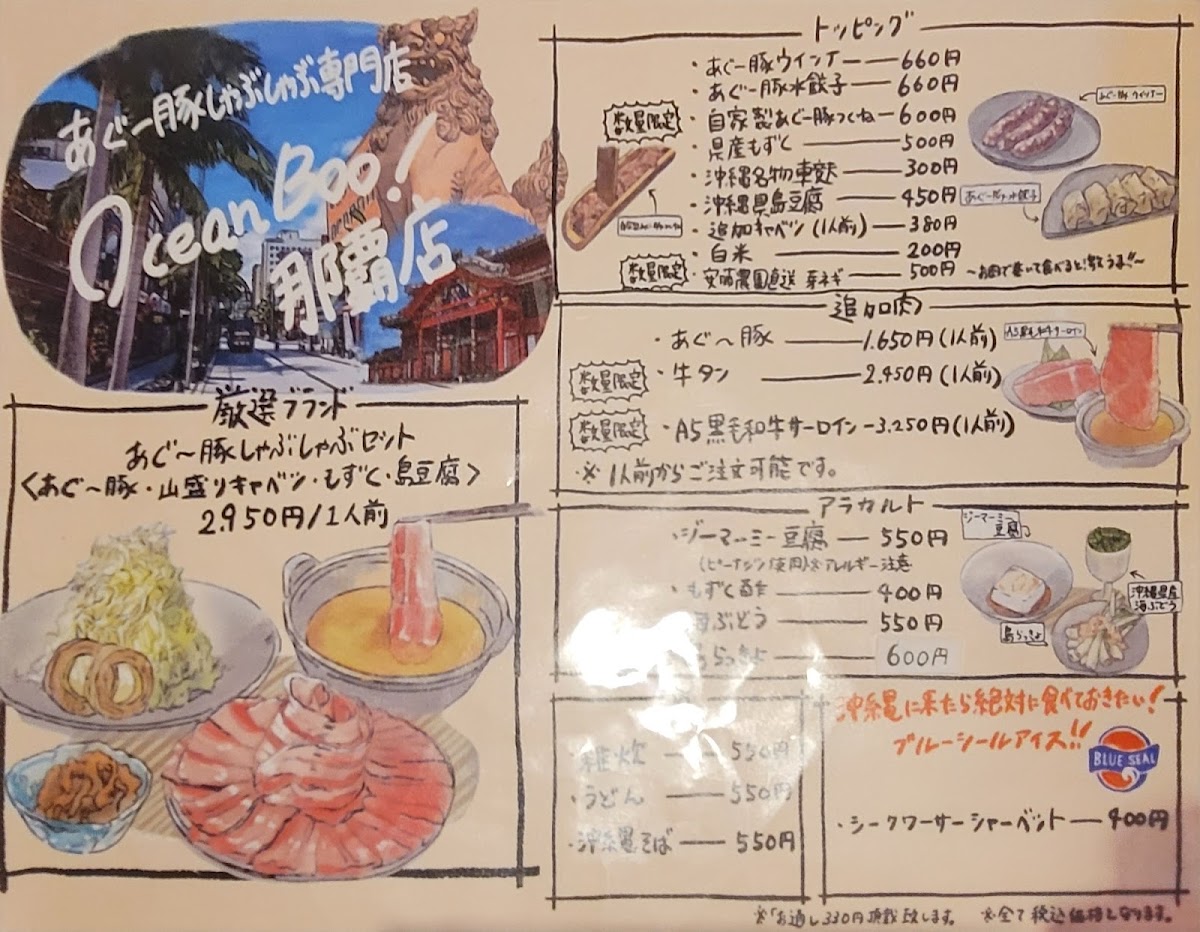 あぐー豚しゃぶしゃぶ専門店
Ocean Boo!
那覇店
厳選ブランド
あぐ〜豚しゃぶしゃぶセット
<あぐ〜豚・山盛りキャベツ・もずく・島豆腐>
2.950円/1人前
トッピング
・あぐー豚ウインナー 660円
・あぐー豚水餃子 660円
数量限定 ・自家製あぐー豚つくね 600円
・県産もずく 500円
・沖縄名物車麩 300円
・沖縄県島豆腐 450円
・追加キャベツ(1人前) 380円
・白米 200円
数量限定 ・安西農園直送 芽ネギ 500円 〜お肉で巻いて食べると激うま!!〜
あぐー豚ウインナー
あぐー豚水餃子
追加肉
・あぐ〜豚 1.650円(1人前)
数量限定 ・牛タン 2.450円(1人前)
数量限定 ・A5黒毛和牛サーロイン 3.250円(1人前)
・※1人前からご注文可能です。
A5黒毛和牛サーロイン
アラカルト
・ジーマーミー豆腐 550円
(ピーナッツ使用)※アレルギー注意
・もずく酢 400円
海ぶどう 550円
島らっきょ 600円
ジーマーミー豆腐
沖縄県産海ぶどう
島らっきょ
雑炊 550円
・うどん 550円
・沖縄そば 550円
沖縄に来たら絶対に食べておきたい!
ブルーシールアイス!!
BLUE SEAL
・シークワーサーシャーベット 400円
※「お通し330円頂戴致します。 ※全て税込価格となります。